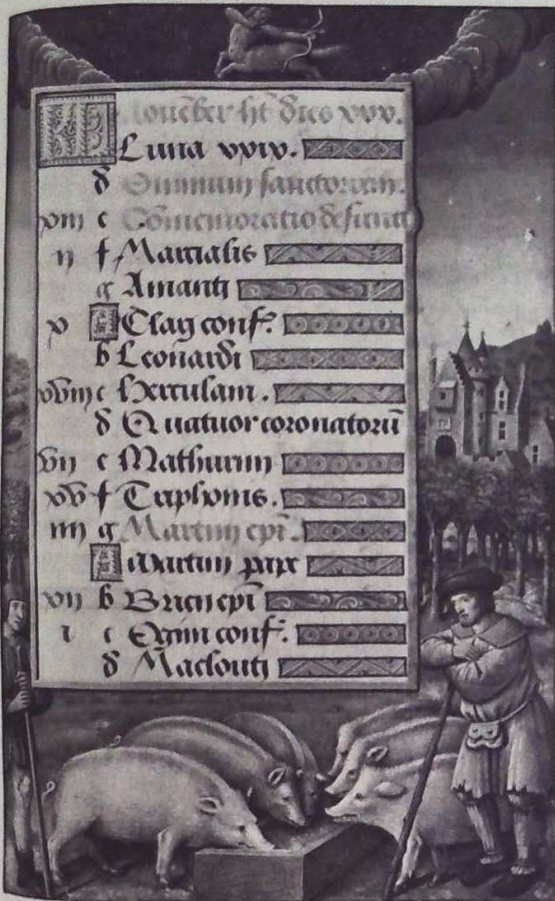 KL Nouēber hēt dies xxx.
Luna xxix.
d Omnium sanctorum.
xiii e Cōmemoratio defūnct
ii f Marcialis
g Amanti
x A Clari conf.
b Leonardi
xviii c Herculani.
d Quatuor coronatorū
vii e Mathurini
xv f Triphonis.
iiii g Martini epī.
A Martini pape
xii b Bricii epī
i c conf.
d Macloutij